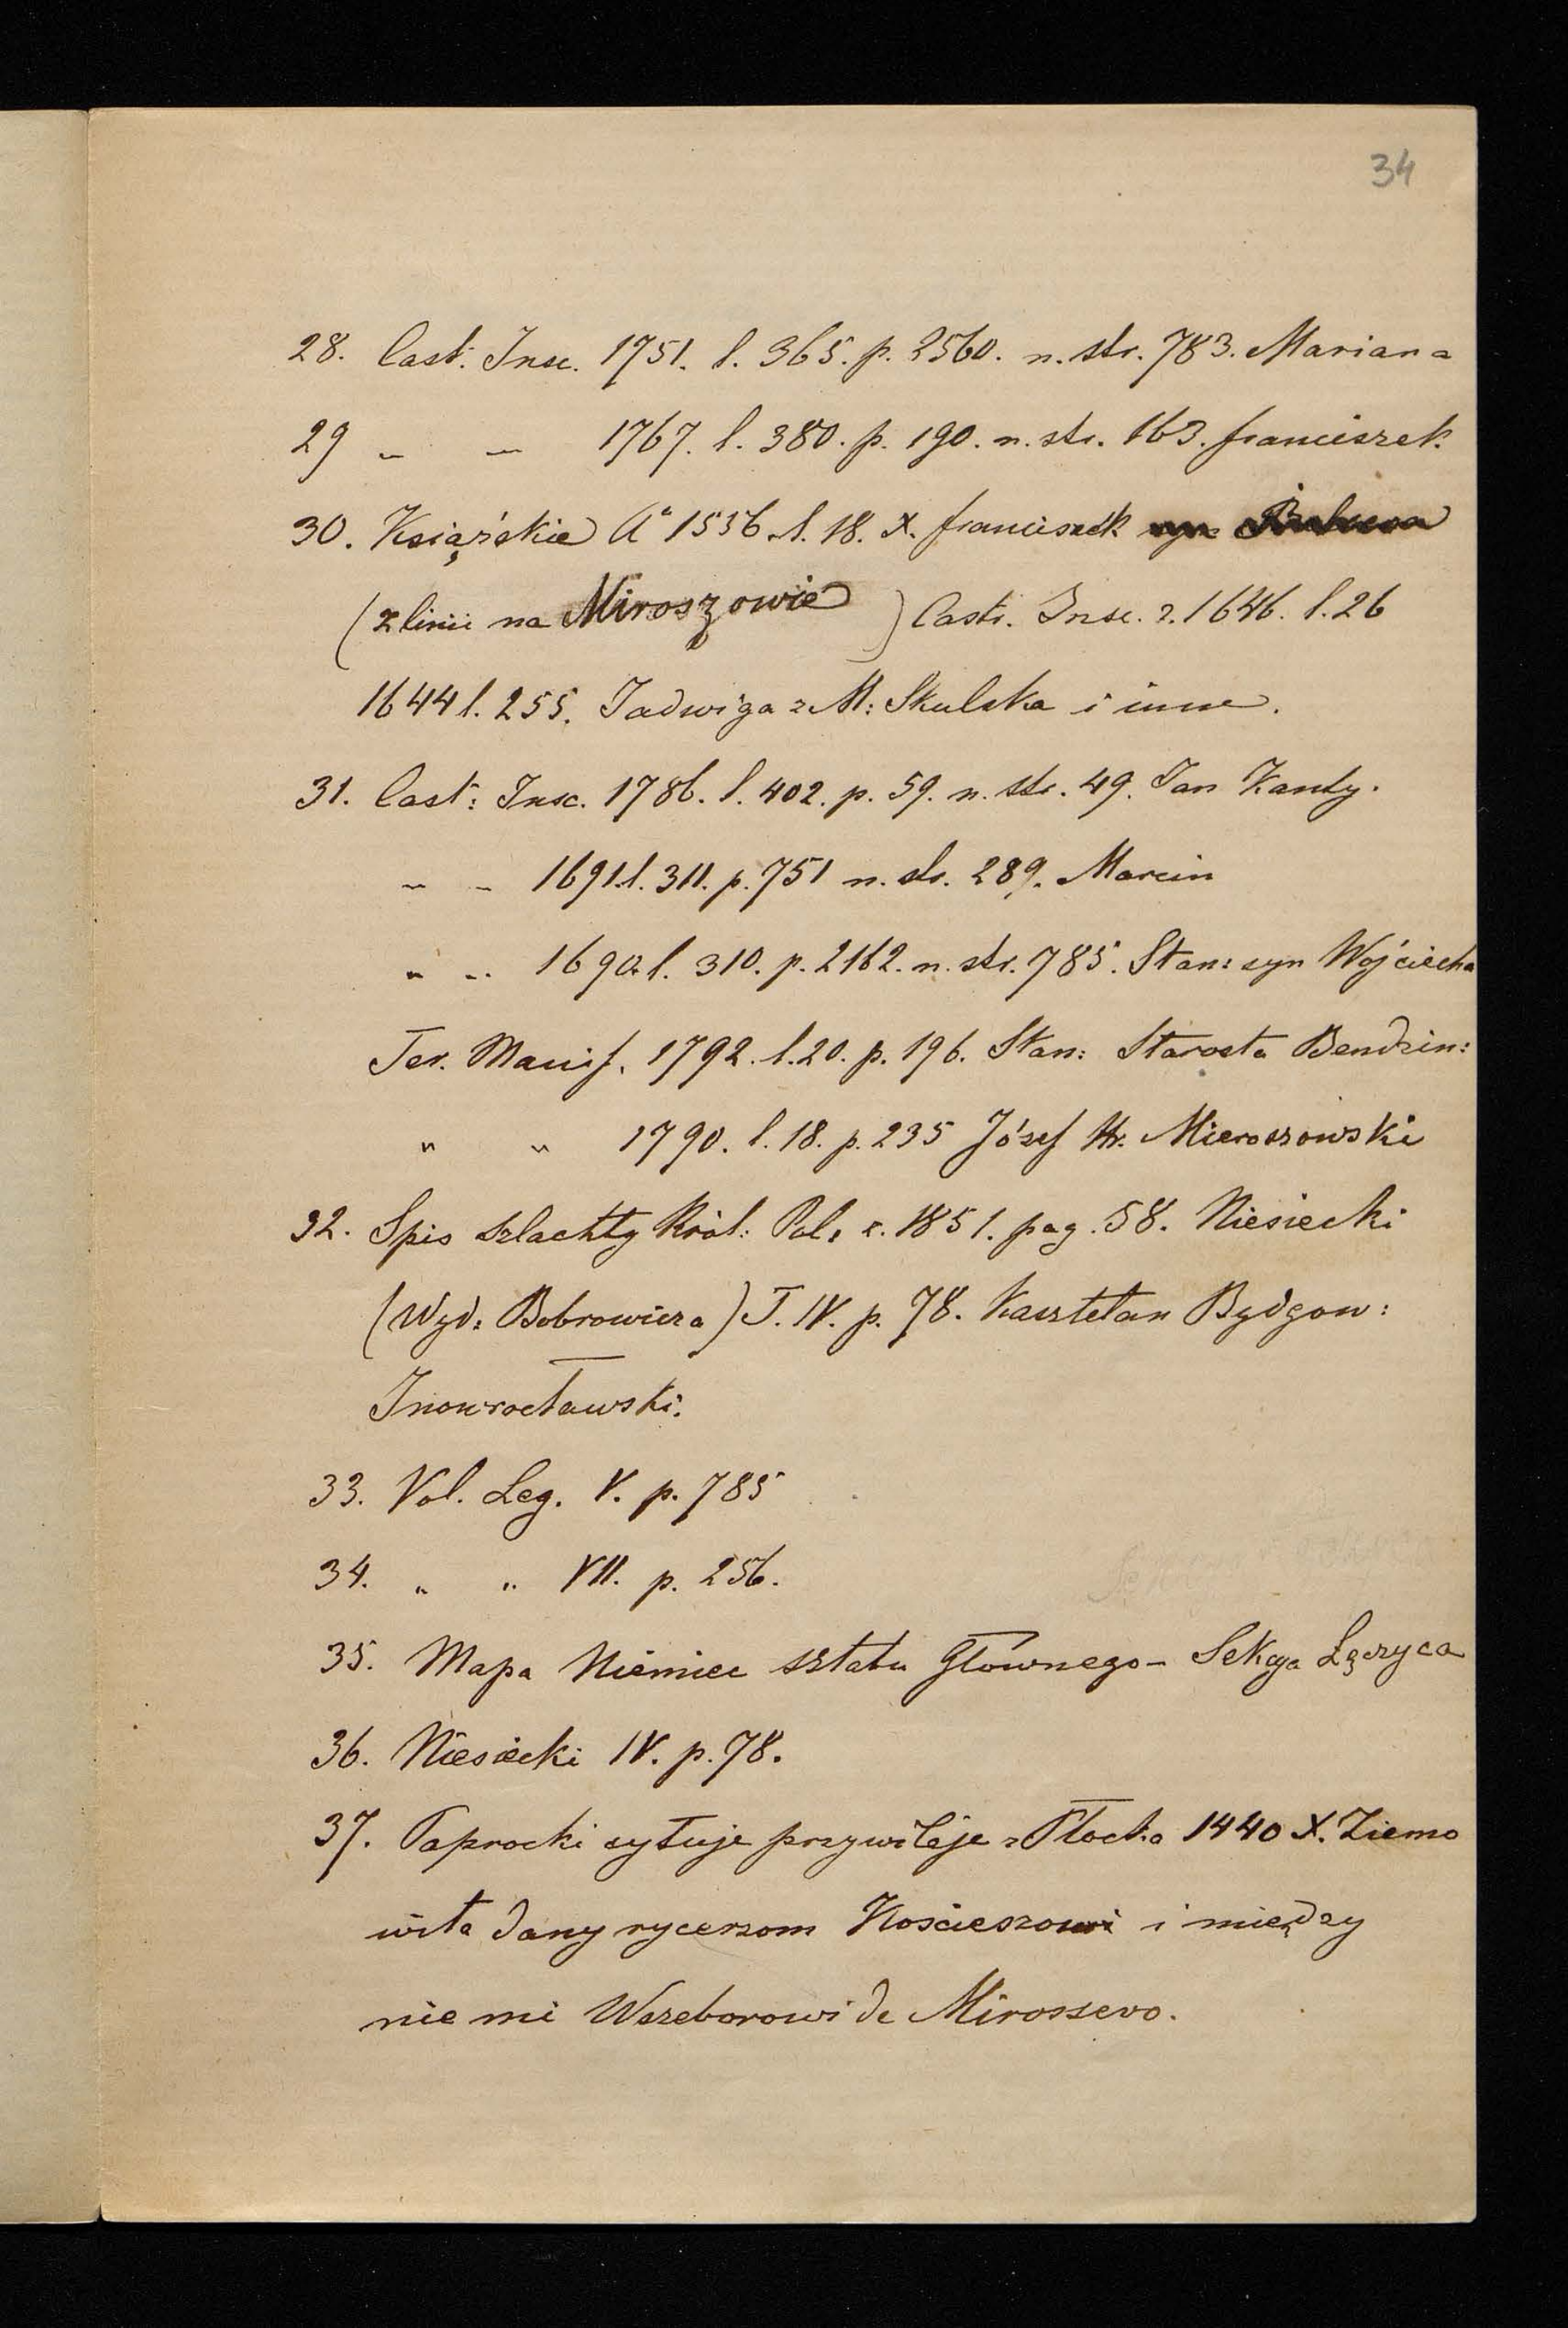 34
28. Cast. Insc. 1751. l. 365. p. 2560. n. str. 783. Mariana
29 „ „ 1767. l. 380. p. 190. n. str. 163. franciszek
30. Książskie Aº 1536 l. 18. X. franciszek syn
(z linii na Miroszowie) Castr. Insc. r. 1646. l. 26
1644 l. 255. Jadwiga z M: Skulska i inne.
31. Cast: Insc. 1786. l. 402. p. 59. n. str. 49. Jan Kanty.
„ „ 1691. l. 311. p. 751 n. str. 289. Marcin
„ „ 1690. l. 310. p. 2162. n. str. 785. Stan: syn Wojciecha
Ter. Manif. 1792. l. 20. p. 196. Stan: Starosta Bendzin:
„ „ 1790. l. 18. p. 235 Józef Hr. Mieroszowski
32. Spis szlachty Król: Pol: r. 1851. pag. 58. Niesiecki
(Wyd: Bobrowicza) T. IV. p. 78. Kasztelan Bydgow:
Inowrocławski.
33. Vol. Leg. V. p. 785
34. „ „ VII. p. 256.
35. Mapa Niemiec sztabu Głownego - Sekcya Łęczyca
36. Niesiecki IV. p. 78.
37. Paprocki cytuje przywileje z Płocka 1440 X. Ziemo
wita dany rycerzom Kościeszowi i między
niemi Wszeborowi de Miroszevo.